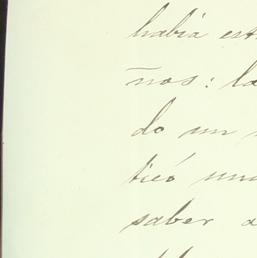 había est
nos: la
do un
ticó un
saber a